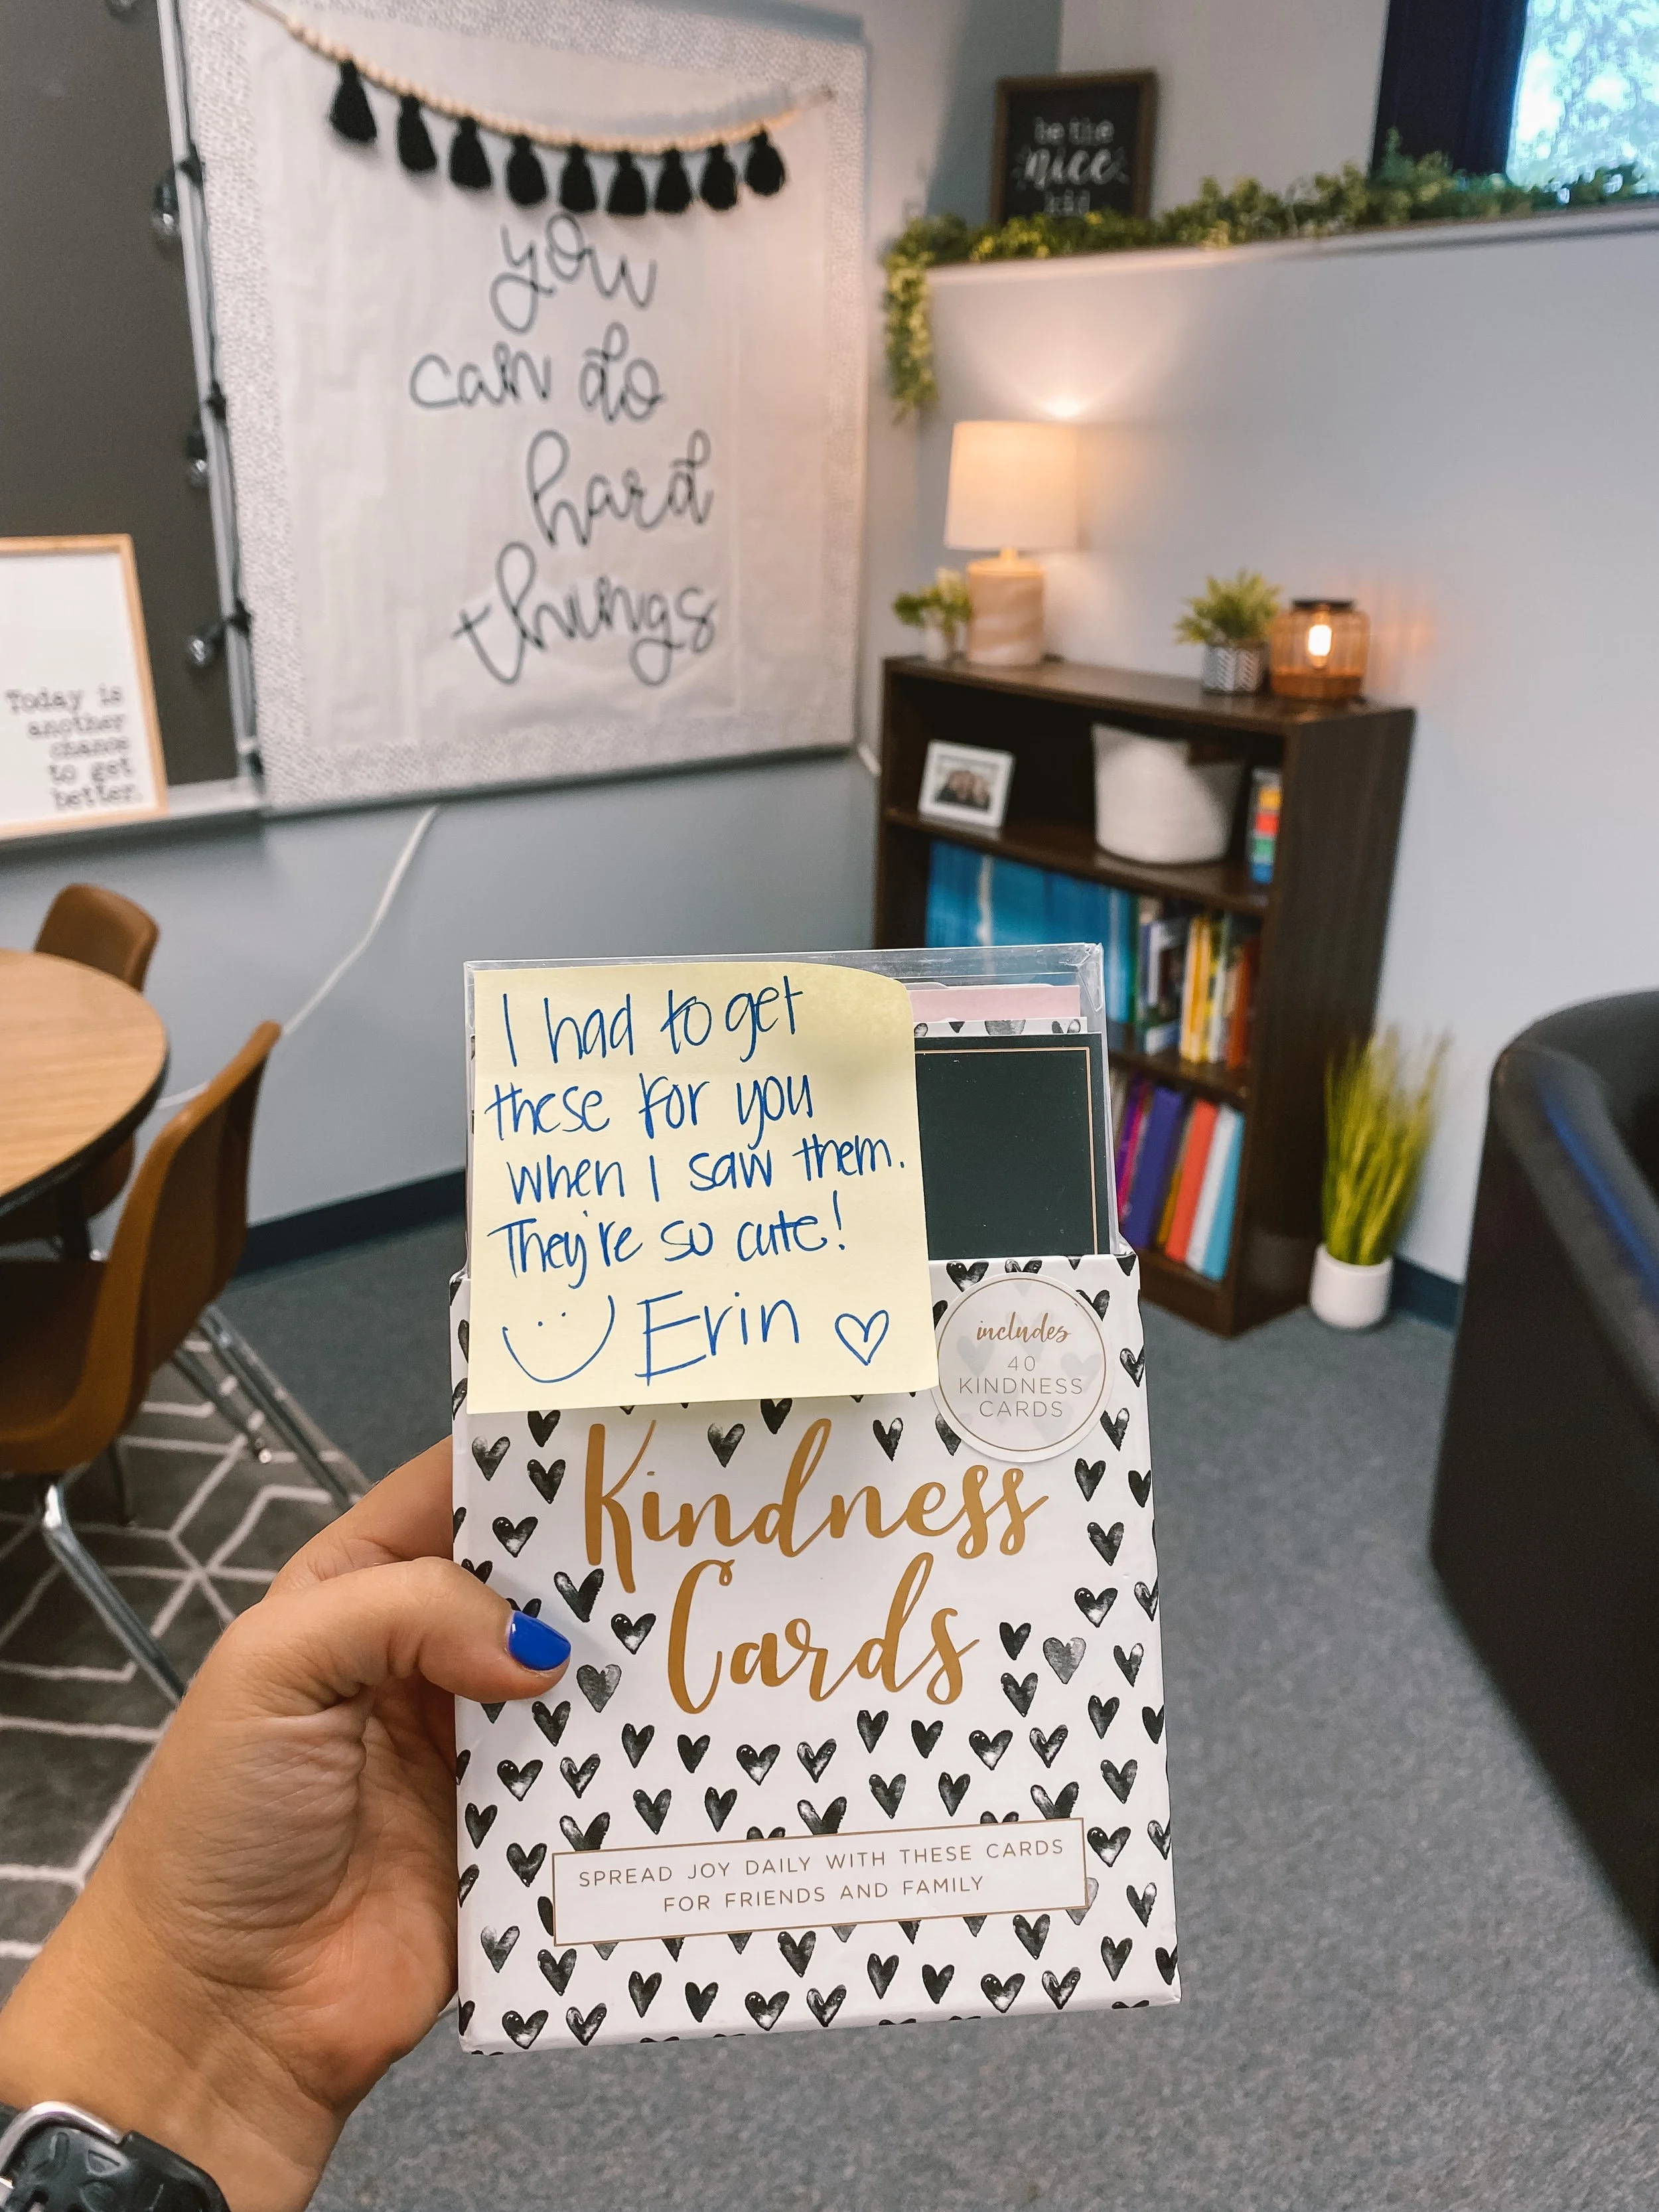 be the
nice
kid
you
can do
hard
things
Today is
another
chance
to get
better.
I had to get
these for you
when I saw them.
They're so cute!
Erin
includes
40
KINDNESS
CARDS
Kindness
Cards
SPREAD JOY DAILY WITH THESE CARDS
FOR FRIENDS AND FAMILY